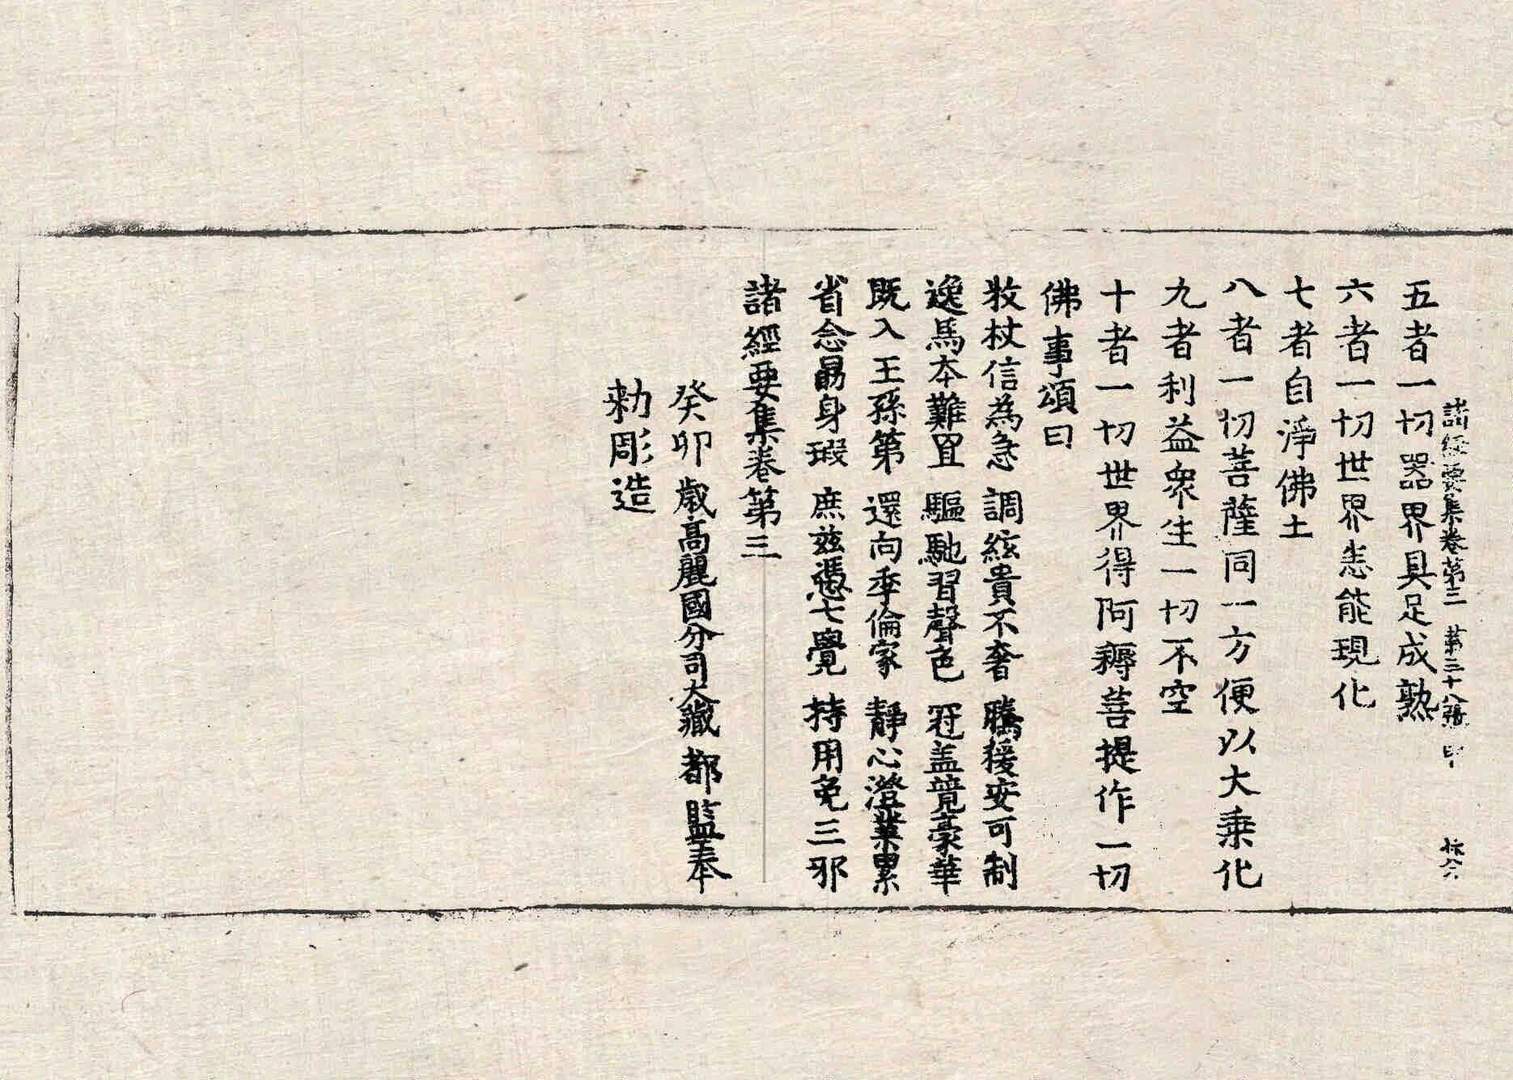 諸經要集卷第三 第三十八張 甲
五者一切器界具足成熟
六者一切世界悉能現化
七者自淨佛土
八者一切菩薩同一方便以大乗化
九者利益衆生一切不空
十者一切世界得阿耨菩提作一切
佛事頌曰
牧杖信為急 調絃貴不奢 騰猨安可制
逸馬本難罝 驅馳習聲色 冠盖競豪華
既入王孫第 還向季倫家 靜心澄業累
省念勗身瑕 庶玆憑七覺 持用免三邪
諸經要集卷第三
癸卯歲高麗國分司大藏都監奉
勅彫造